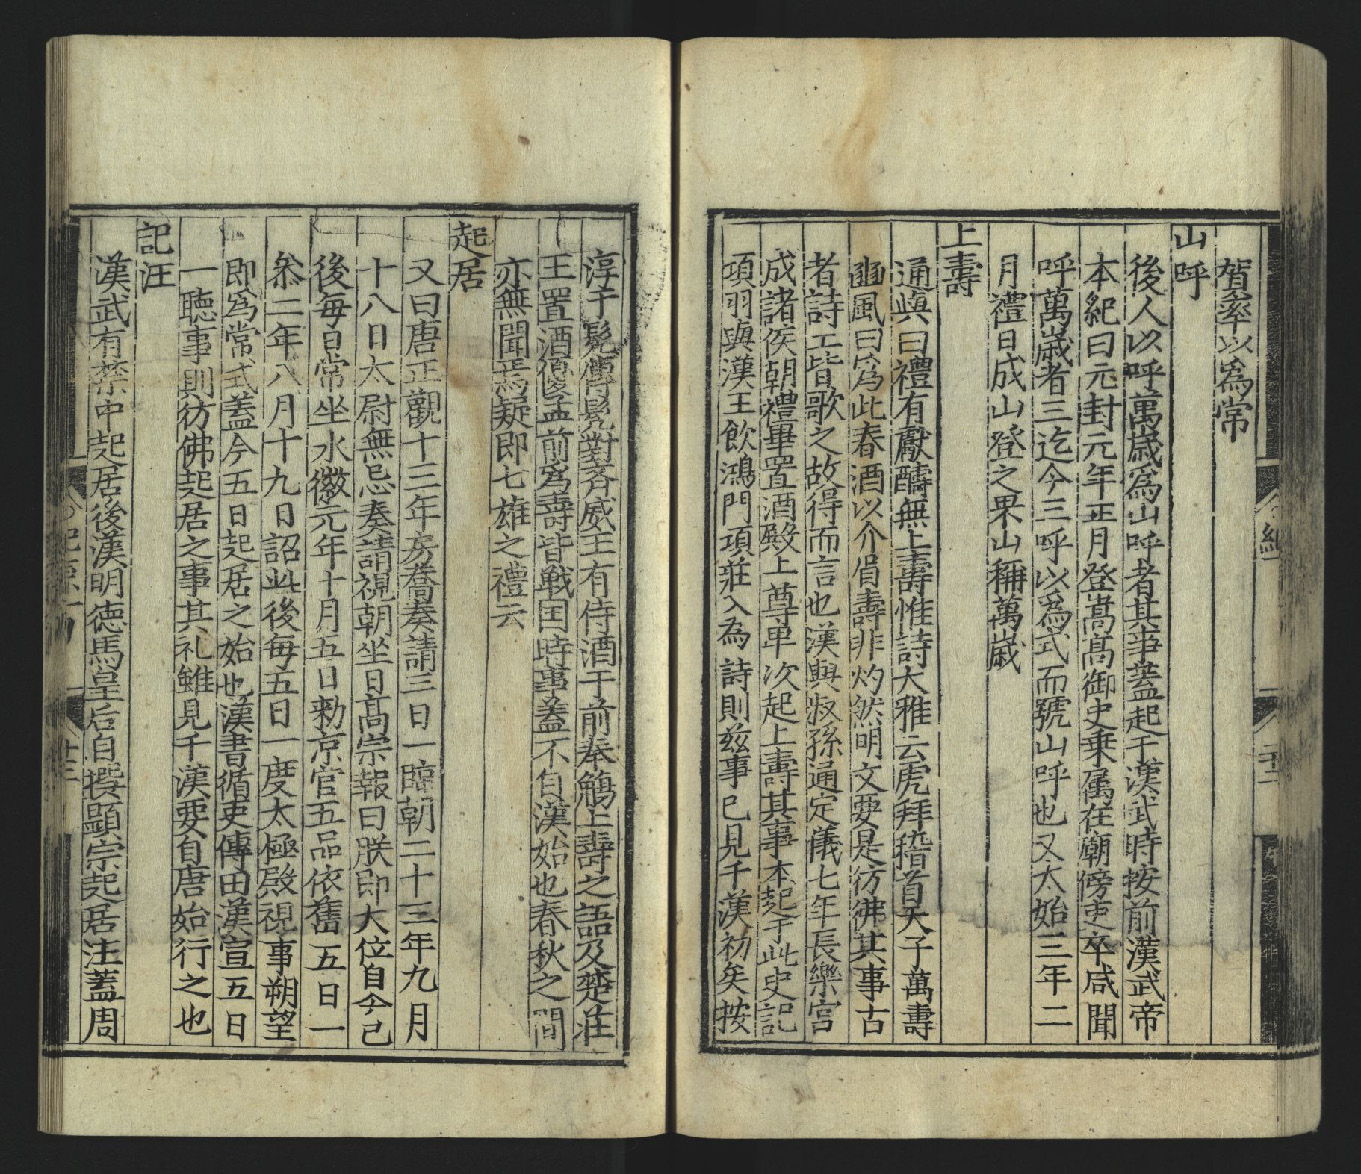 賀率以為常
山呼
後人以呼萬歲爲山呼者其事蓋起于漢武時按前漢武帝
本紀曰元封元年正月登嵩高御史乗属在廟傍吏卒咸聞
呼萬歲者三迄今三呼以爲式而號山呼也又太始三年二
月禮日成山登之果山稱萬歲
上壽
通典曰禮有獻酬無上壽惟詩大雅云虎拜稽首天子萬壽
豳風曰爲此春酒以介眉壽非灼然明文要是彷彿其事古
者詩工皆歌之故得而言也漢興叔孫通定儀七年長樂宮
成諸侯朝禮畢置酒殿上尊卑次起上壽其事本起于此史記
項羽與漢王飲鴻門項莊入為詩則兹事已見于漢初矣按
淳于髡傳髡對齊威王有侍酒于前奉觴上壽之語及楚莊
王置酒優孟前爲壽皆戦国時事蓋不自漢始也春秋之間
亦無聞焉疑即七雄之禮云
起居
又曰唐正觀十三年房喬奏請三日一臨朝二十三年九月
十八日太尉無忌奏請視朝坐日髙宗報曰朕即大位自今已
後每日常坐水徽元年十月五日勑京官五品依舊五日一
叅二年八月十九日詔此後每五日一度太極殿視事朔望
即爲常式蓋今五日起居之始也漢書循吏傳曰漢宣五日
一聽事則彷佛起居之事其礼雖見于漢要自唐始行之也
記注
漢武有禁中起居後漢明徳馬皇后自撰顯宗起居注蓋周